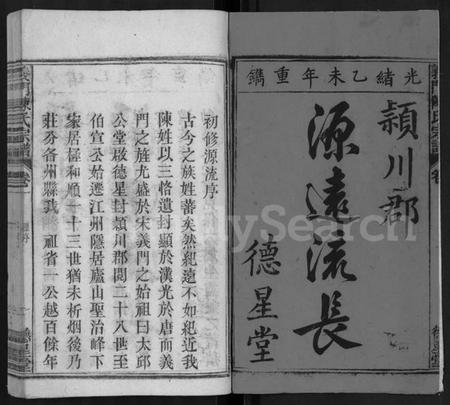 光緒乙未年重鐫
潁川郡
源遠流長
德星堂
義門陳氏宗譜 卷
初修源流序
古今之族姓蕃矣然紀遠不如紀近我
陳姓以三恪遺封顯於漢光於唐而義
門之旌尤盛於宋義門之始祖曰太邱
公堂啟德星封潁川郡閱二十八世至
伯宣公始遷江州隱居廬山聖治峰下
家居極和順一十三世猶未析烟後乃
莊分各州縣我 祖省一公越百餘年
FamilySearch